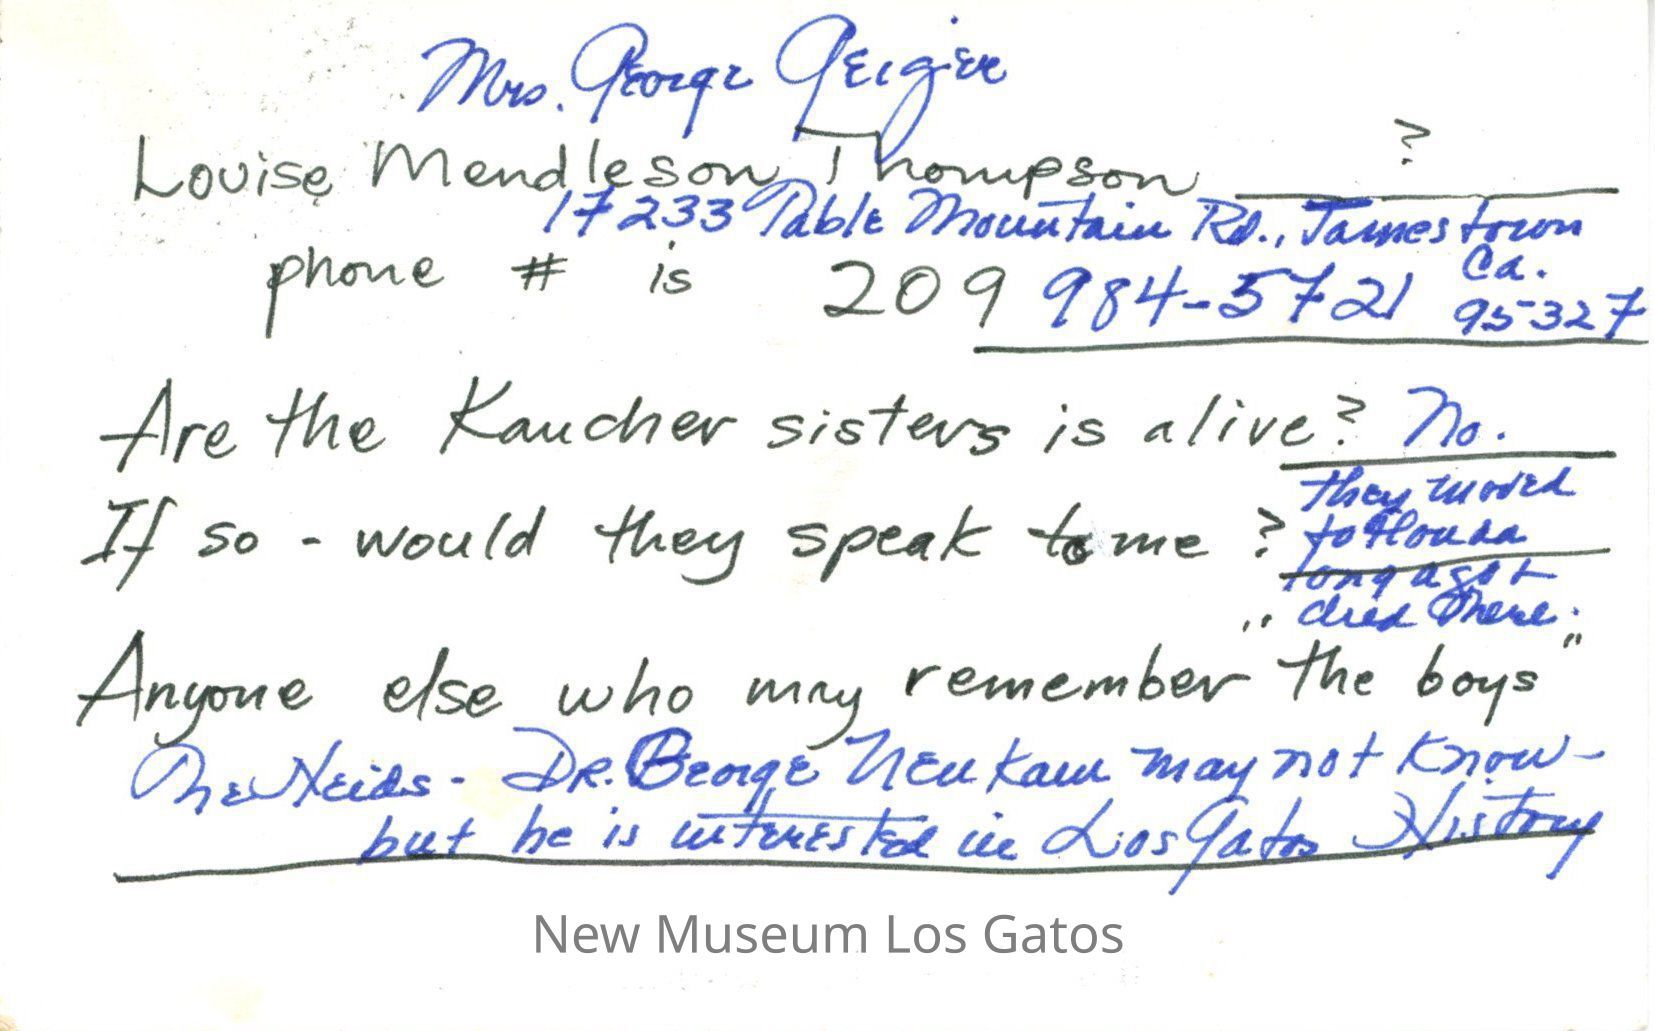 Mrs. George Geiger
Louise Mendleson Thompson ?
17233 Table Mountain Rd., Jamestown
Ca.
phone # is 209 984-5721 95327
Are the Kaucher sisters is alive? No.
they moved
If so - would they speak to me ? to Florida
long ago +
died there.
Anyone else who may remember "the boys"
The Neids - Dr. George Neukam may not know -
but he is interested in Los Gatos History
New Museum Los Gatos